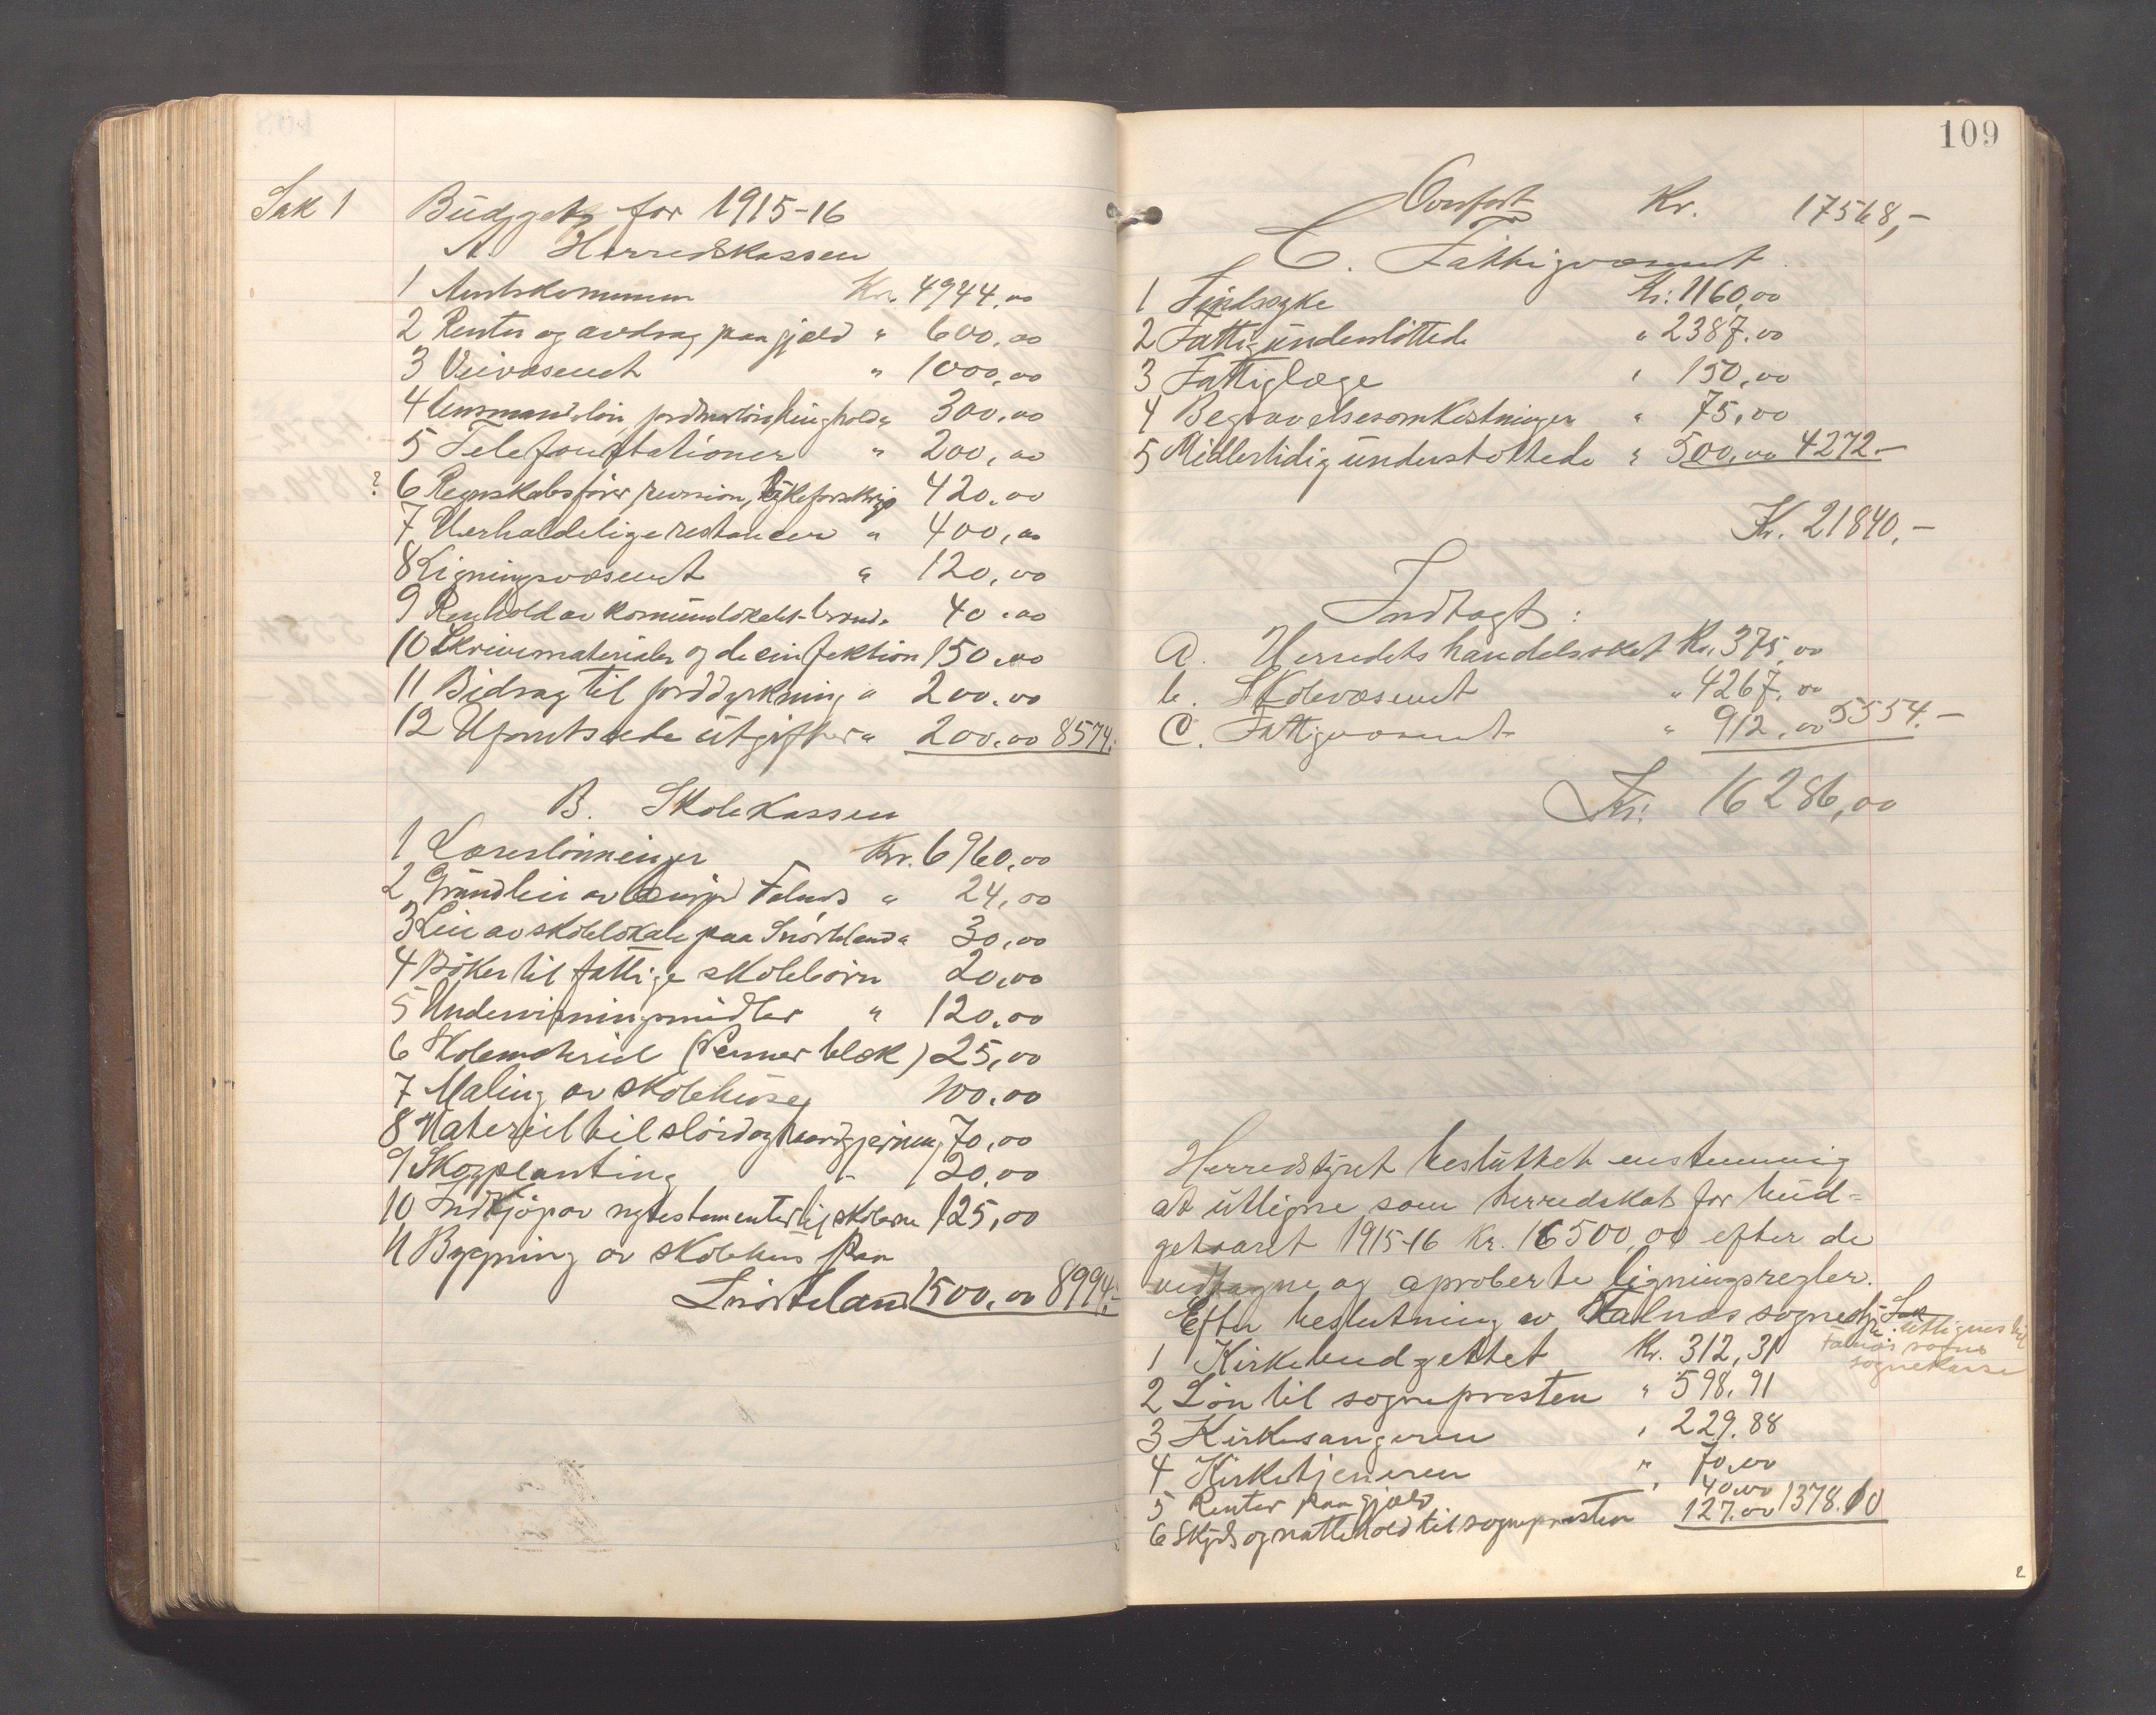 Sak 1 Budget for 1915-16
A. Herredskassen
1 Amtskommunen Kr. 4944.00
2 Renter og avdrag paa gjæld " 600.00
3 Veivæsenet " 1000.00
4 300.00
5 Telefonstationer " 200.00
? 6 Regnskabsfører, revision, 420.00
7 Uerholdelige restancer " 400.00
8 Ligningsvæsenet " 120.00
9 Renhold av 40.00
10 Skrivematerialer og decinfektion 150.00
11 Bidrag til jorddyrkning " 200.00
12 Uforutseede utgifter " 200.00 8574.
B. Skolekassen
1 Lærerlønninger Kr. 6960.00
2 Grundleie av Falnes " 24.00
3 Leie av skolelokale paa Snørteland " 30.00
4 Bøker til fattige skolebørn 20.00
5 Undervisningsmidler " 120.00
6 Skolemateriel (Penner blæk) 25.00
7 Maling av skolehuse 100.00
8 Materiel til sløid og haandgjerning 70.00
9 Skogplanting " 20.00
10 Indkjøp av nytestamenter til skolerne 125.00
11 Bygning av skolehus paa
Snørteland 1500.00 8994.-
109
Overført Kr. 17568,-
C. Fattigvæsenet.
1 Sindssyke Kr. 1160.00
2 Fattigunderstøttede " 2387.00
3 Fattiglæge " 150.00
4 Begravelsesomkostninger " 75.00
5 Midlertidig understøttede " 500.00 4272.-
Kr. 21840.-
Indtægt:
a. Herredets handelsskat Kr. 375.00
b. Skolevæsenet " 4267.00
c. Fattigvæsenet " 912.00 5554.-
Kr. 16286,00
Herredstyret besluttet enstemmig
at utligne som herredskat for bud-
getaaret 1915-16 Kr. 16500,00 efter de
vedtagne og aproberte ligningsregler.
Efter beslutning av Falnæs utlignes til
Falnæs sogns
sognekasse
1 Kirkebudgettet Kr. 312,31
2 Løn til sognepresten " 598.91
3 Kirkesangeren " 229.88
4 Kirketjeneren " 70.00
5 Renter paa gjæld " 40.00
6 Skyds og nattehold til sognepresten 127.00 1378.10